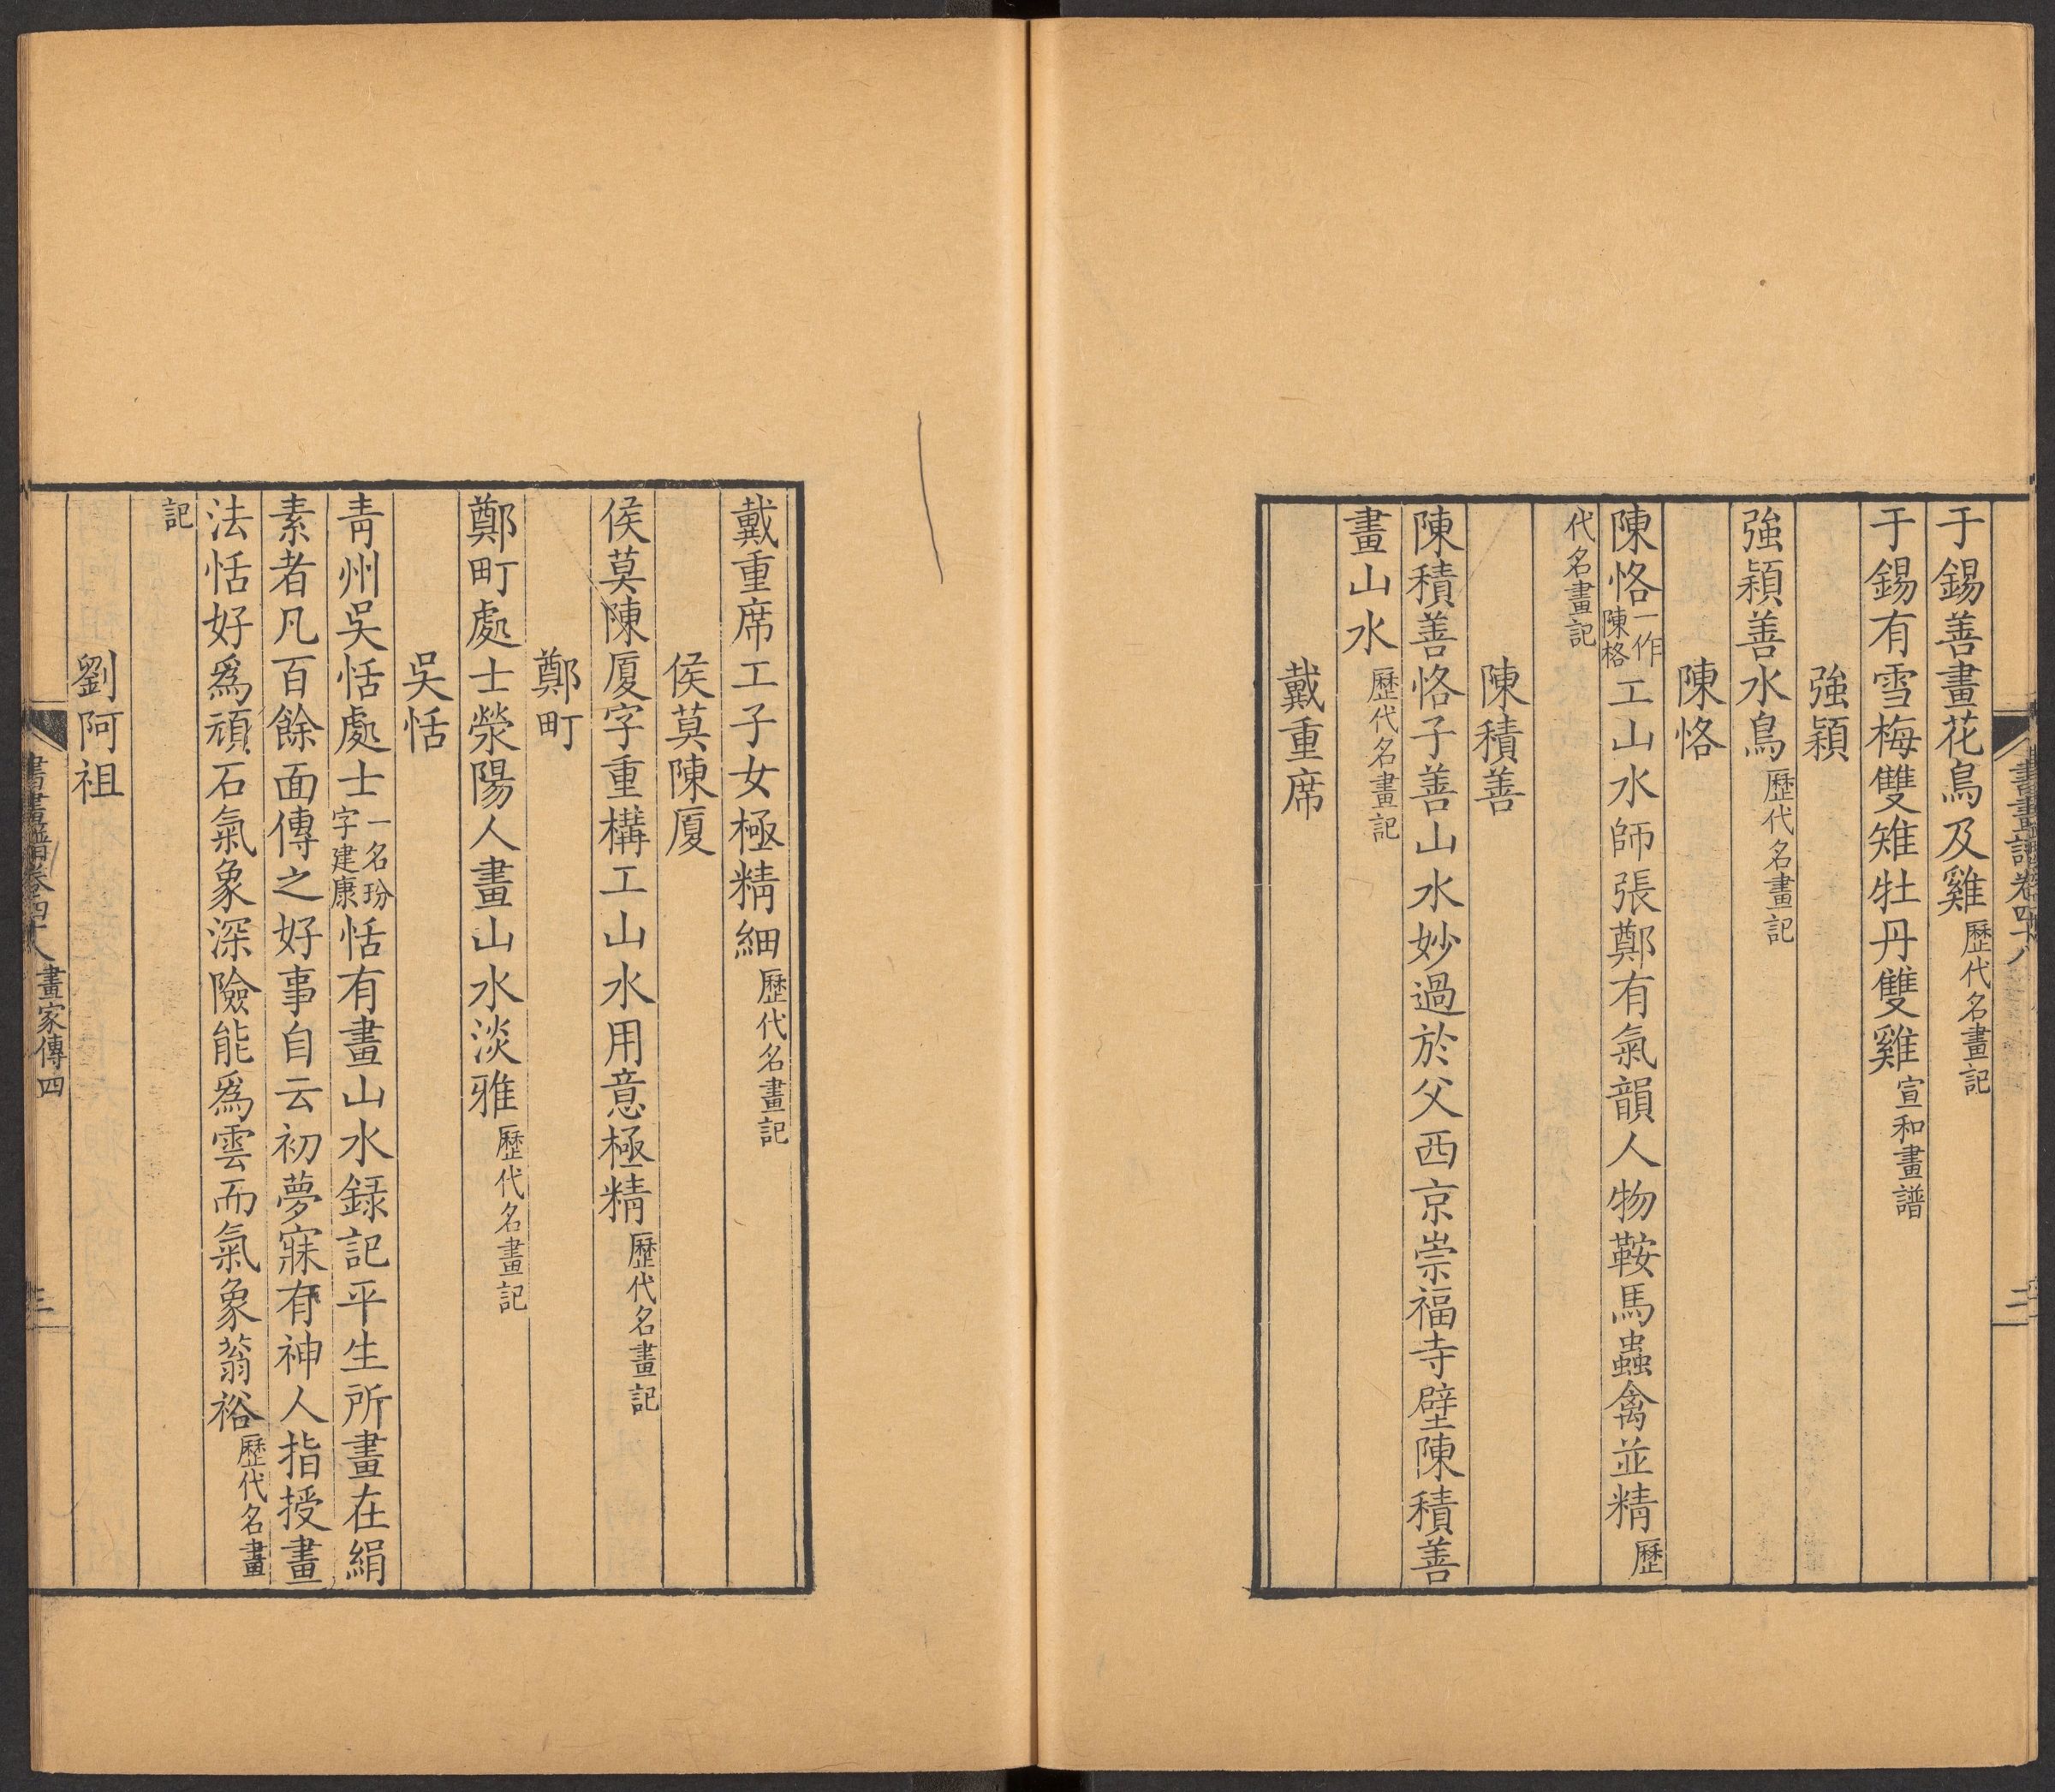 于錫善畫花鳥及雞歷代名畫記
于錫有雪梅雙雉牡丹雙雞宣和畫譜
強穎
強穎善水鳥歷代名畫記
陳恪
陳恪一作陳格工山水師張鄭有氣韻人物鞍馬蟲禽並精歷
代名畫記
陳積善
陳積善恪子善山水妙過於父西京崇福寺壁陳積善
畫山水歷代名畫記
戴重席
戴重席工子女極精細歷代名畫記
侯莫陳厦
侯莫陳厦字重構工山水用意極精歷代名畫記
鄭町
鄭町處士滎陽人畫山水淡雅歷代名畫記
吳恬
青州吳恬處士一名玢字建康恬有畫山水錄記平生所畫在絹
素者凡百餘面傳之好事自云初夢寐有神人指授畫
法恬好爲頑石氣象深險能爲雲而氣象蓊裕歷代名畫
記
劉阿祖
書畫譜卷四十八 畫家傳四
三